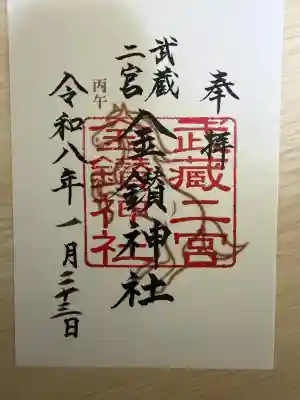 奉拝
武蔵
二宮
金鑚神社
丙午
令和八年 一月二十三日
武蔵二宮
金鑚神社